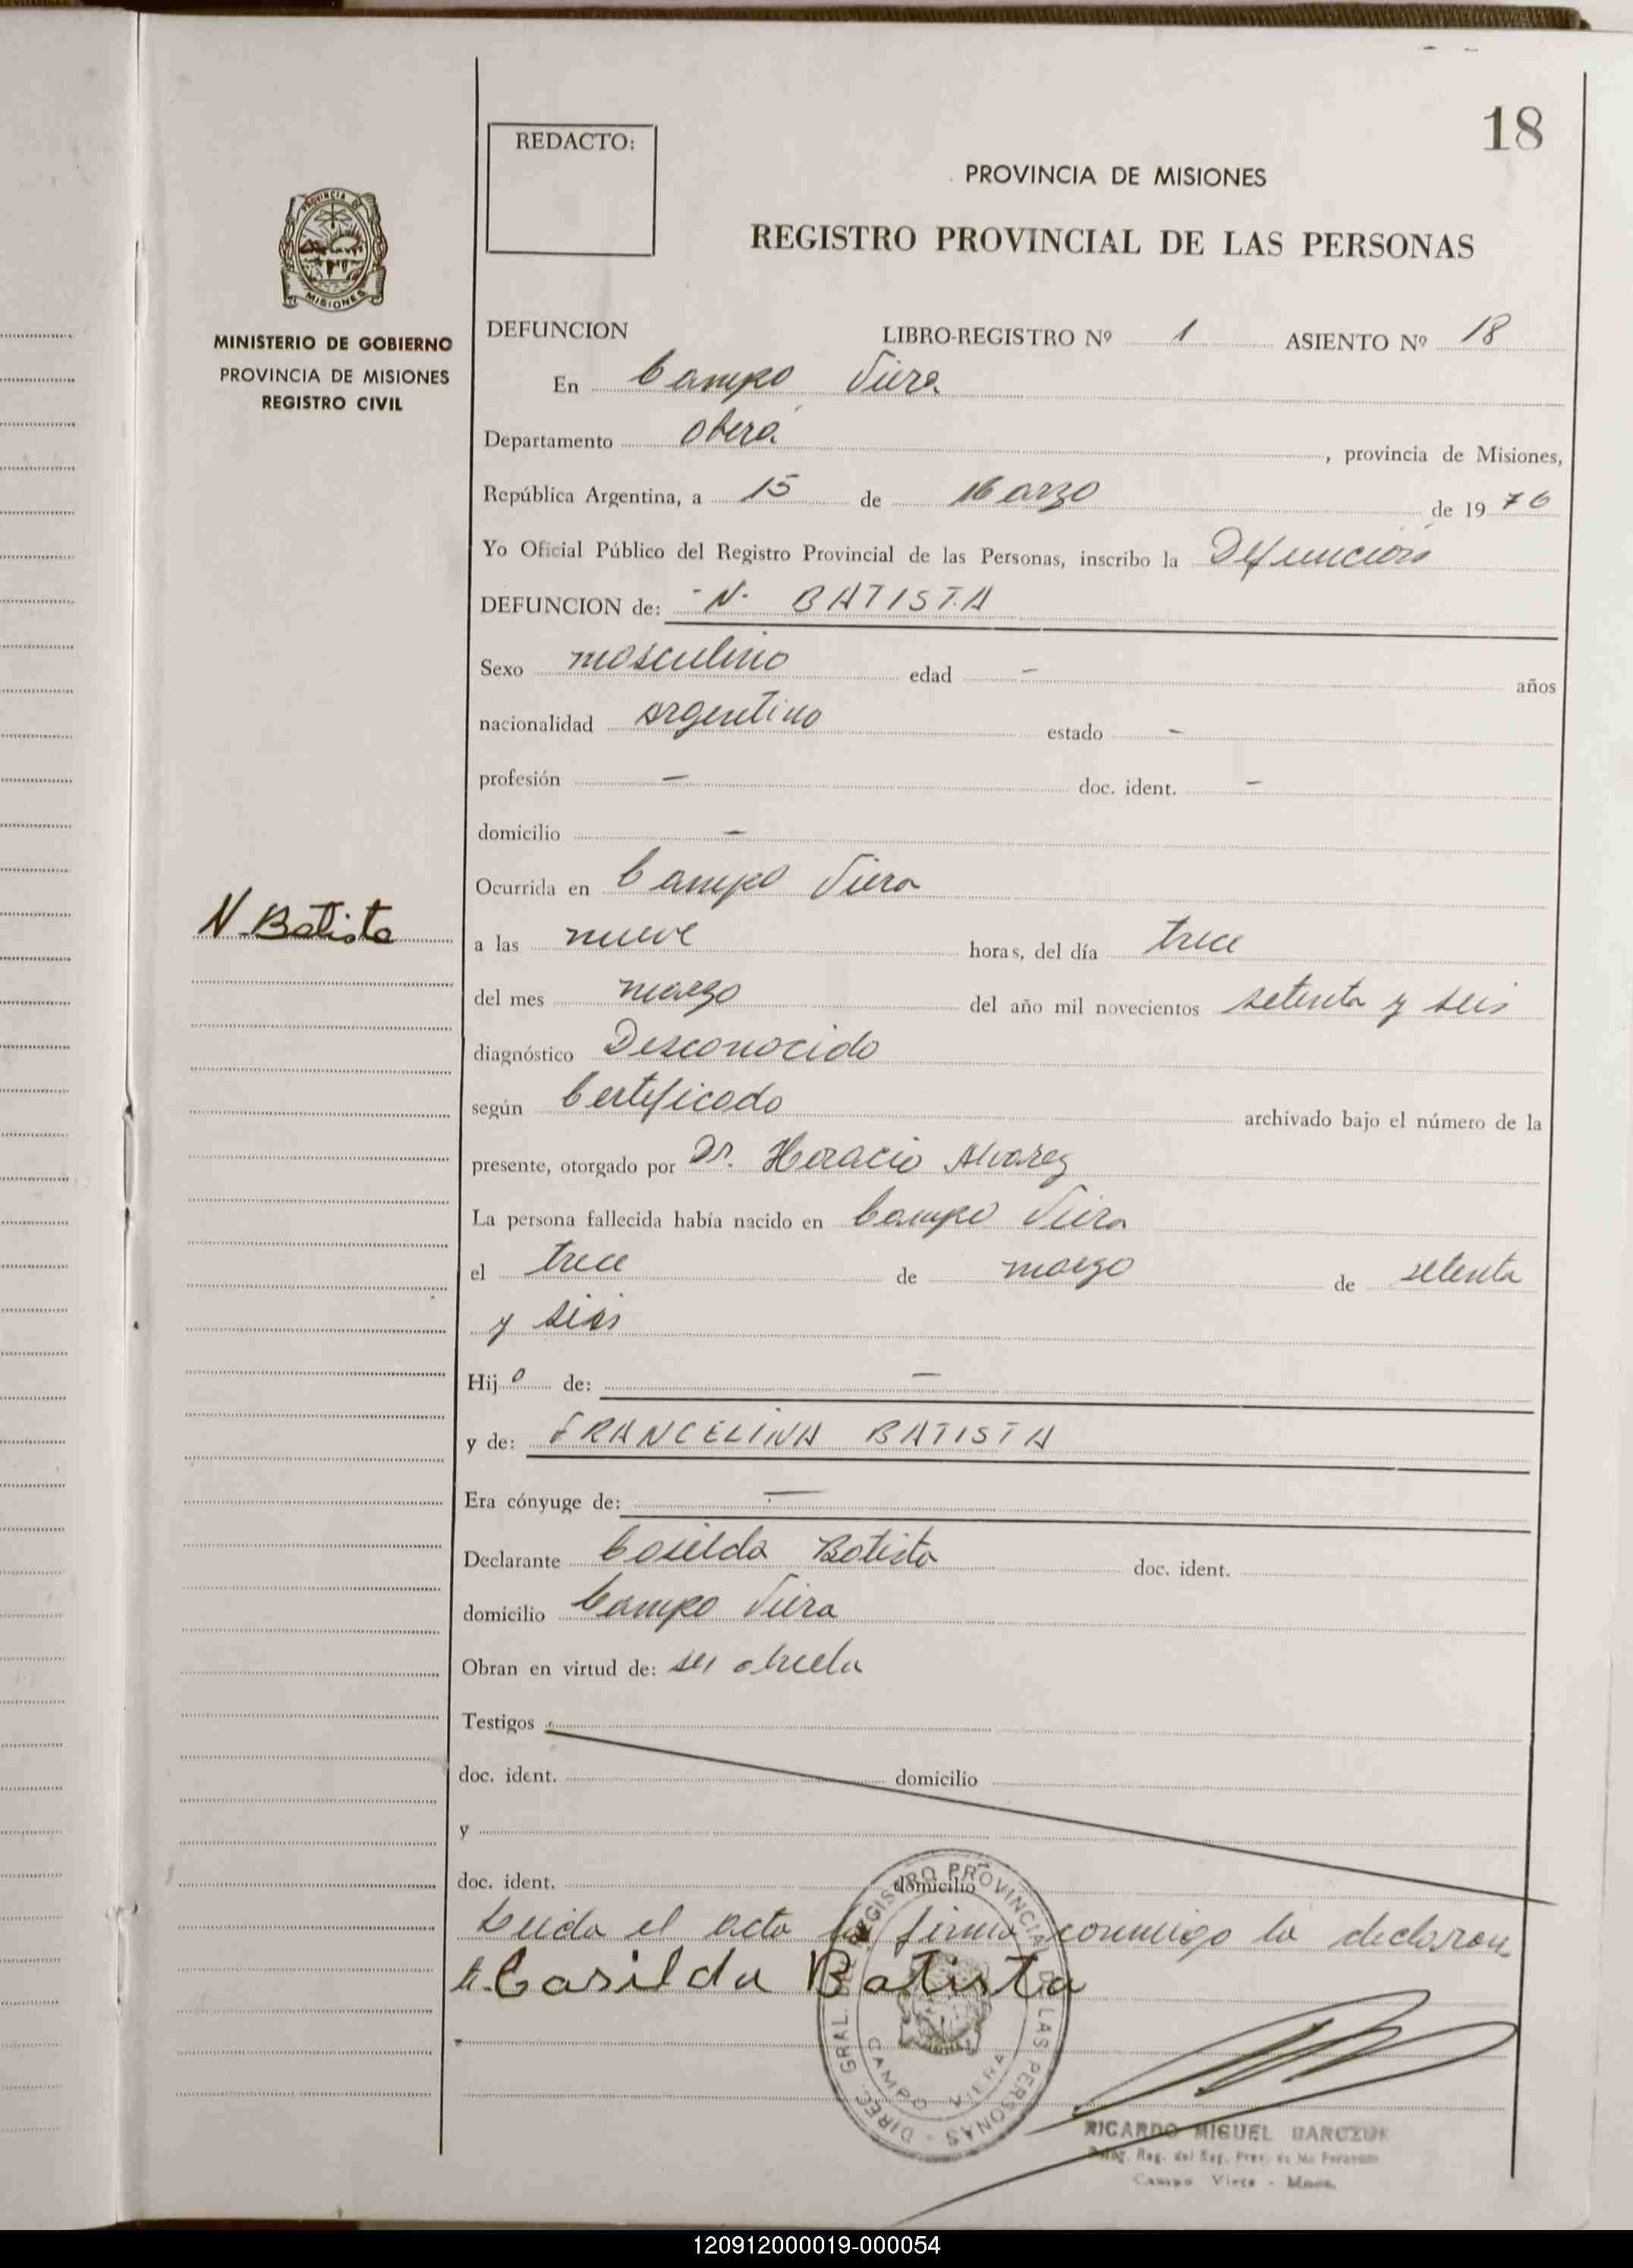 18
REDACTO:
PROVINCIA DE MISIONES
REGISTRO PROVINCIAL DE LAS PERSONAS
PROVINCIA DE
MISIONES
MINISTERIO DE GOBIERNO
PROVINCIA DE MISIONES
REGISTRO CIVIL
DEFUNCION LIBRO-REGISTRO Nº 1 ASIENTO Nº 18
En Campo Viera
Departamento Oberá, provincia de Misiones,
República Argentina, a 15 de Marzo de 1976
Yo Oficial Público del Registro Provincial de las Personas, inscribo la Defunción
DEFUNCION de: - N. BATISTA
Sexo masculino edad - años
nacionalidad argentino estado -
profesión - doc. ident. -
domicilio -
Ocurrida en Campo Viera
N. Batista
a las nueve horas, del día trece
del mes marzo del año mil novecientos setenta y seis
diagnóstico Desconocido
según Certificado archivado bajo el número de la
presente, otorgado por Dr. Horacio Alvarez
La persona fallecida había nacido en Campo Viera
el trece de marzo de setenta
y seis
Hijo de: -
y de: FRANCELINA BATISTA
Era cónyuge de: -
Declarante Casilda Batista doc. ident.
domicilio Campo Viera
Obran en virtud de: ser abuela
Testigos
doc. ident. domicilio
y
doc. ident. domicilio
Leida el acta la firma conmigo la declaran
te. Casilda Batista
DIREC. GRAL. DEL REGISTRO PROVINCIAL DE LAS PERSONAS -
CAMPO VIERA
RICARDO MIGUEL BARCZUK
Reg. del Reg. Prov. de las Personas
Campo Viera - Mnes.
120912000019-000054